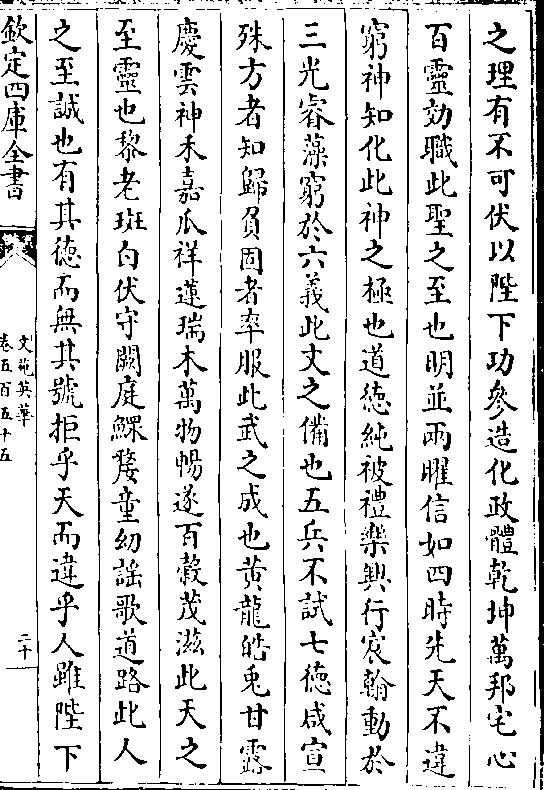 之理有不可伏以陛下功參造化政體乾坤萬邦宅心
百靈効職此聖之至也明並兩曜信如四時先天不違
窮神知化此神之極也道德純被禮樂興行宸翰動於
三光睿藻窮於六義此文之備也五兵不試七德咸宣
殊方者知歸負固者率服此武之成也黃龍皓兎甘露
慶雲神禾嘉瓜祥蓮瑞木萬物暢遂百穀茂滋此天之
至靈也黎老班白伏守闕庭鰥嫠童幼謡歌道路此人
之至誠也有其德而無其號拒乎天而違乎人雖陛下
欽定四庫全書
文苑英華
卷五百五十五
二十